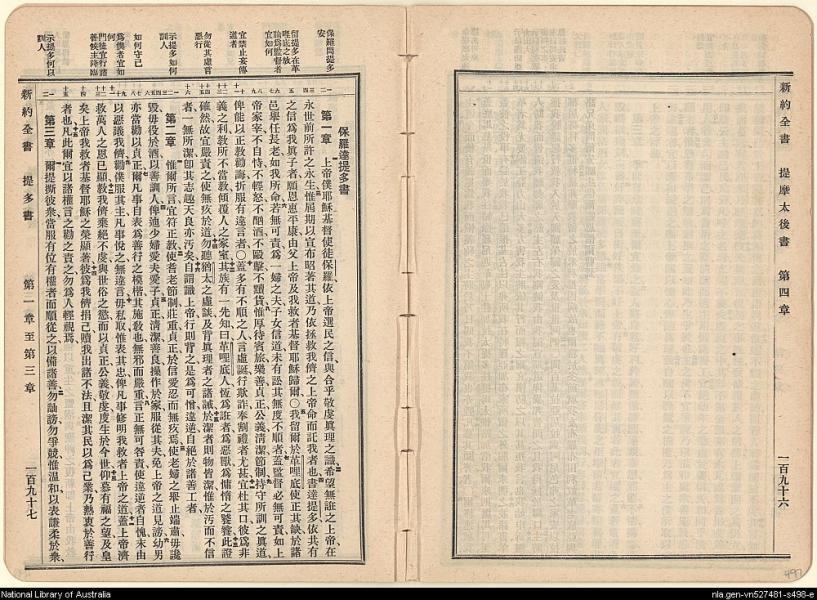 新約全書　提摩太後書　第四章　一百九十六
保羅問提多安
留提多在革哩底之故
論為監督者宜如何
宜禁止妄傳道者
勿從其虛言惡行
示提多如何訓人
如何守己
為僕者宜如何
門徒宜行諸善候主降臨
示提多何以訓人
保羅達提多書
第一章　上帝僕耶穌基督使徒保羅依上帝選民之信與合乎敬虔眞理之識希望無誑之上帝在
永世前所許之永生惟屆期以宣布昭若其道乃依拯救我儕之上帝命而託我者也書達提多依共有
之信爲我眞子者願恩惠平康由父上帝及我救者基督耶穌歸爾○我留爾於革哩底使正其缺於諸
邑舉任長老如我所命若無可責爲一婦之夫子女信道未有訟其無度不順者蓋監督必無可責如上
帝家宰不自恃不輕怒不酗酒不毆擊不黷貨惟厚待賓旅樂善貞正公義清潔節制持守所訓之眞道
俾能以正敎勸誨折服有違言者○蓋多有不順之人言虛誕行欺詐奉割禮者尤甚宜杜其口彼爲非
義之利敎所不當敎傾覆人之家室其族有一先知曰革哩底人恆爲誑者爲惡獸爲慵惰之饕餮此證
確然故宜嚴責之使無疚於道勿聽猶太之虛談及背眞理者之誡於潔者則物皆潔惟於污而不信
者一無所潔卽其志趣天良亦污矣自謂識上帝行則背之是爲可憎違逆自絕於諸善工者
第二章　惟爾所言宜符正敎使耆老節制莊重貞正於信愛忍而無疚焉使老婦之舉止端肅毋讒
毀毋役於酒以善訓人俾迪少婦愛夫愛子貞正清潔善良操作於家服從其夫免上帝之道見謗幼男
亦當勸以貞正爾凡事自表爲善行之模楷其施敎也無邪而嚴重言正無可咎責使違逆者自愧未由
以惡議我儕勸僕服其主凡事悅之無違言毋私取惟表其忠俾凡事修明我救者上帝之道蓋上帝濟
救萬人之恩已顯敎我儕棄絕不虔與世俗之慾而以貞正公義敬虔度生於今世仰慕有福之望及皇
矣上帝我救者基督耶穌之榮顯著彼爲我儕捐己贖我出諸不法且潔其民以爲己業乃熱衷於善行
者也凡此爾宜以諸權言之勸之責之勿爲人輕視焉
第三章　爾提撕彼衆當服有位有權者而順從之以備諸善勿訕謗勿爭競惟溫和以表謙柔於衆
新約全書　提多書　第一章至第三章　一百九十七
497
National Library of Australia
nla.gen-vn527481-s498-e